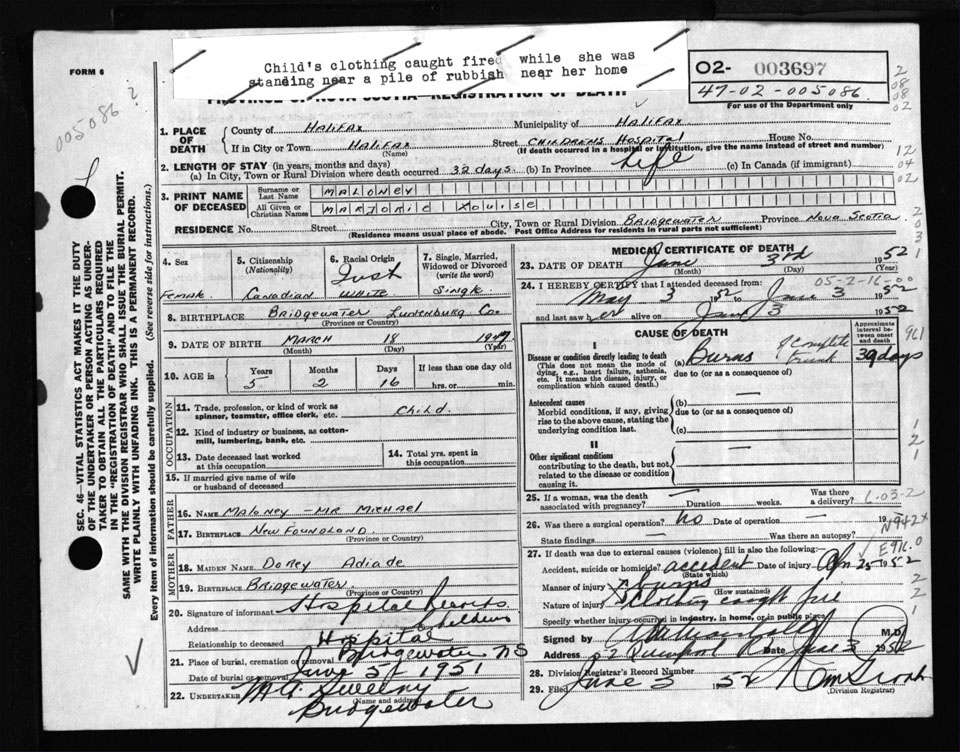 Child's clothing caught fired while she was
standing near a pile of rubbish near her home
FORM 6
PROVINCE OF NOVA SCOTIA—REGISTRATION OF DEATH
02- 003697
47-02-005086
For use of the Department only
005086 ?
SEC. 46—VITAL STATISTICS ACT MAKES IT THE DUTY
OF THE UNDERTAKER OR PERSON ACTING AS UNDER-
TAKER TO OBTAIN ALL THE PARTICULARS REQUIRED
IN THE "REGISTRATION OF DEATH" AND TO FILE THE
SAME WITH THE DIVISION REGISTRAR WHO SHALL ISSUE THE BURIAL PERMIT.
WRITE PLAINLY WITH UNFADING INK. THIS IS A PERMANENT RECORD.
Every item of information should be carefully supplied. (See reverse side for instructions.)
1. PLACE OF DEATH
County of Halifax Municipality of Halifax
If in City or Town Halifax Street Childrens Hospital House No.
(Name) (If death occurred in a hospital or institution, give the name instead of street and number)
2. LENGTH OF STAY (in years, months and days)
(a) In City, Town or Rural Division where death occurred 32 days. (b) In Province Life (c) In Canada (if immigrant)
3. PRINT NAME OF DECEASED
Surname or Last Name MALONEY
All Given or Christian Names Marjorie Louise
RESIDENCE No. Street City, Town or Rural Division Bridgewater Province Nova Scotia
(Residence means usual place of abode. Post Office Address for residents in rural parts not sufficient)
4. Sex
Female
5. Citizenship
(Nationality)
Canadian
6. Racial Origin
White
7. Single, Married,
Widowed or Divorced
(write the word)
Single
8. BIRTHPLACE Bridgewater Lunenburg Co.
(Province or Country)
9. DATE OF BIRTH March 18 1947
(Month) (Day) (Year)
10. AGE in
Years Months Days If less than one day old
5 2 16 hrs. or min.
OCCUPATION
11. Trade, profession, or kind of work as
spinner, teamster, office clerk, etc. Child.
12. Kind of industry or business, as cotton-
mill, lumbering, bank, etc.
13. Date deceased last worked
at this occupation
14. Total yrs. spent in
this occupation
15. If married give name of wife
or husband of deceased
FATHER
16. NAME Maloney - Mr Michael
17. BIRTHPLACE New Foundland.
(Province or Country)
MOTHER
18. MAIDEN NAME Doney Adiade
19. BIRTHPLACE Bridgewater.
(Province or Country)
20. Signature of informant Hospital Records
Address Childrens
Relationship to deceased Hospital
21. Place of burial, cremation or removal Bridgewater NS
Date of burial or removal June 5 1951
22. UNDERTAKER Sweeny
(Name and address)
Bridgewater
MEDICAL CERTIFICATE OF DEATH
23. DATE OF DEATH June 3rd 1952
(Month) (Day) (Year)
05-2-16-0
24. I HEREBY CERTIFY that I attended deceased from:
May 3 1952 to June 3 1952
and last saw her alive on June 3 1952
CAUSE OF DEATH
Approximate
interval be-
tween onset
and death
I
Disease or condition directly leading to death
(This does not mean the mode of
dying, e.g., heart failure, asthenia,
etc. It means the disease, injury, or
complication which caused death.)
(a) Burns
due to (or as a consequence of)
39 days
Antecedent causes
Morbid conditions, if any, giving
rise to the above cause, stating the
underlying condition last.
(b) —
due to (or as a consequence of)
(c) —
II
Other significant conditions
contributing to the death, but not
related to the disease or condition
causing it.
25. If a woman, was the death
associated with pregnancy? — Duration weeks. Was there a delivery?
1-03-2
26. Was there a surgical operation? no Date of operation — 195
State findings — Was there an autopsy?
N942x
27. If death was due to external causes (violence) fill in also the following:
E916.0
Accident, suicide or homicide? accident Date of injury Apr 25 1952
(State which)
Manner of injury Burns
(How sustained)
Nature of injury Clothing caught fire
Specify whether injury occurred in industry, in home, or in public place
Signed by M.D.
Address Date June 3 1952
28. Division Registrar's Record Number
29. Filed June 3 52
(Division Registrar)